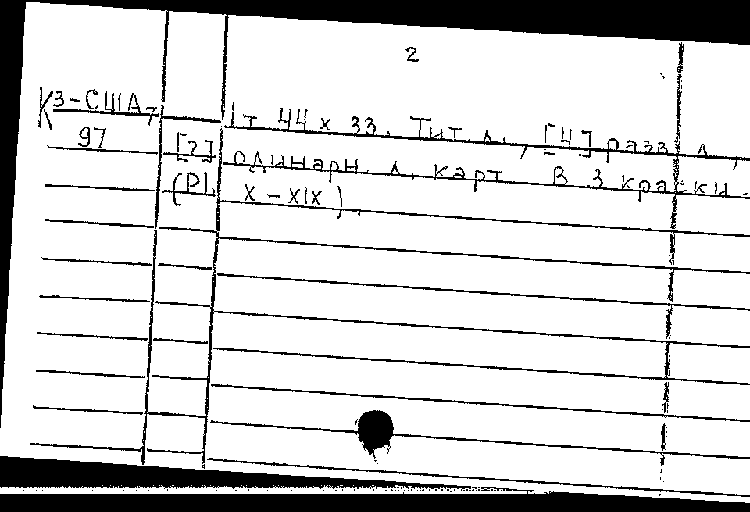 2
К3-США-7
97
1т 44 х 33. Тит. л., [4] разв. л.,
[7] одинарн. л. карт. В 3 краски.
(Pl. X-XIX).